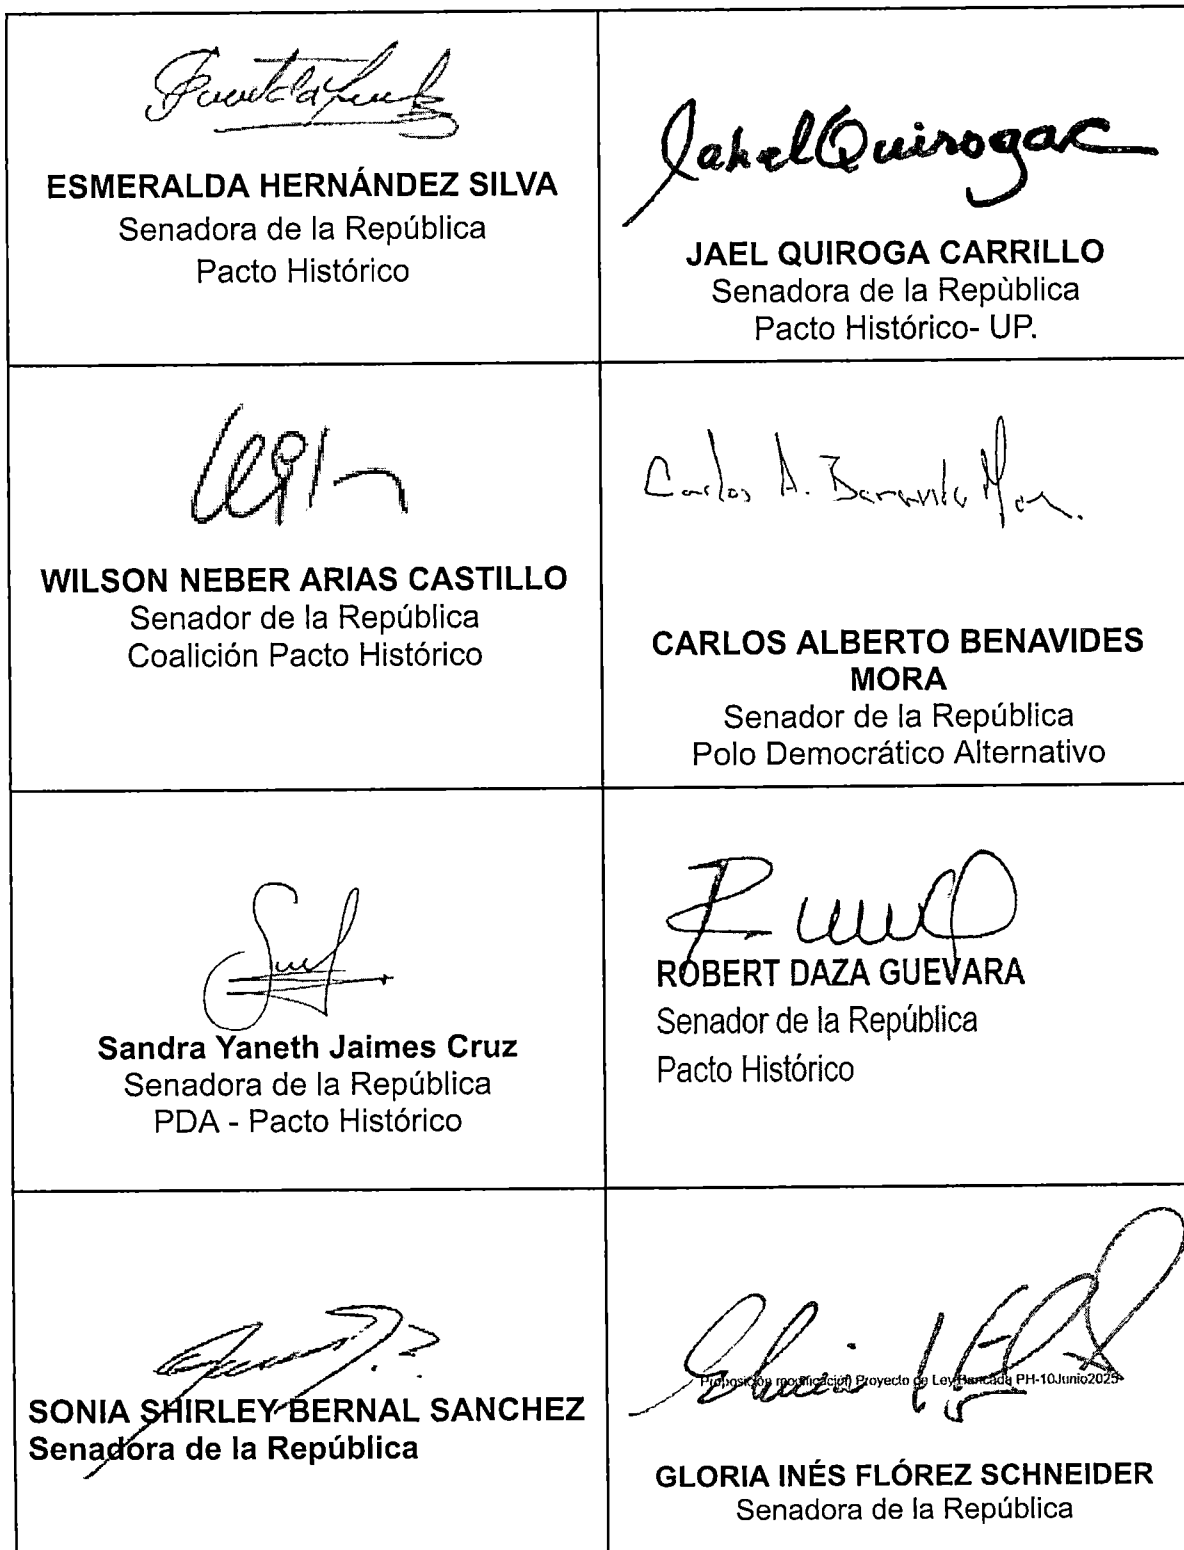 ESMERALDA HERNÁNDEZ SILVA
Senadora de la República
Pacto Histórico
Jahel Quirogac
JAEL QUIROGA CARRILLO
Senadora de la Repùblica
Pacto Histórico- UP.
WILSON NEBER ARIAS CASTILLO
Senador de la República
Coalición Pacto Histórico
Carlos A.
CARLOS ALBERTO BENAVIDES
MORA
Senador de la República
Polo Democrático Alternativo
Sandra Yaneth Jaimes Cruz
Senadora de la República
PDA - Pacto Histórico
ROBERT DAZA GUEVARA
Senador de la República
Pacto Histórico
SONIA SHIRLEY BERNAL SANCHEZ
Senadora de la República
Proposición modificación Proyecto de Ley Bancada PH-10Junio2025
GLORIA INÉS FLÓREZ SCHNEIDER
Senadora de la República